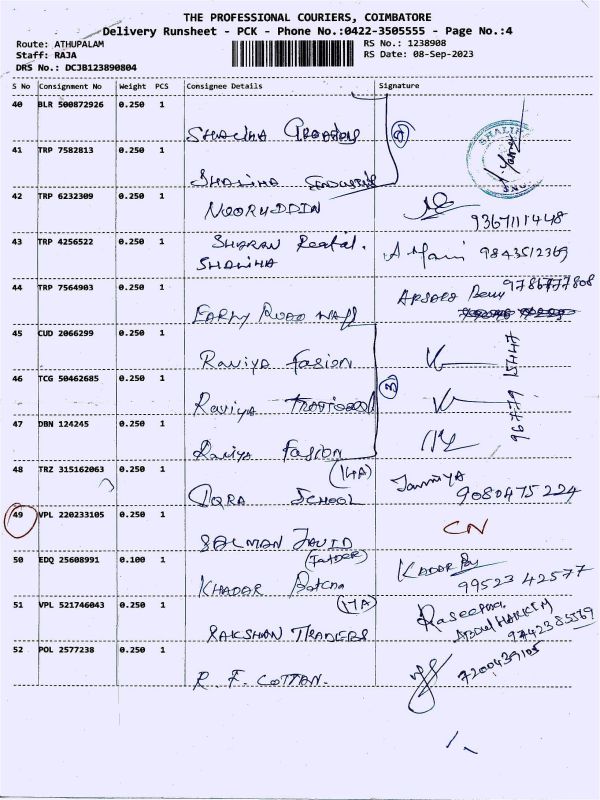 THE PROFESSIONAL COURIERS, COIMBATORE
Delivery Runsheet - PCK - Phone No.:0422-3505555 - Page No.:4
Route: ATHUPALAM
RS No.: 1238908
Staff: RAJA
RS Date: 08-Sep-2023
DRS No.: DCJB123890804
S No Consignment No Weight PCS Consignee Details Signature
40 BLR 500872926 0.250 1
SHALIHA
41 TRP 7582813 0.250 1
SHALIHA
42 TRP 6232309 0.250 1
NOORUDDIN
9367111448
43 TRP 4256522 0.250 1
SHARAN
SHALIHA
9843512369
44 TRP 7564903 0.250 1
9786777808
EARLY ROAD
45 CUD 2066299 0.250 1
Raviya Fasion
46 TCG 50462685 0.250 1
Raviya
3
96779 15447
47 DBN 124245 0.250 1
Raviya Fasion
48 TRZ 315162063 0.250 1
(14A)
IQRA SCHOOL
9080475224
49 VPL 220233105 0.250 1
SALMAN JAVID
CN
50 EDQ 25608991 0.100 1
KHADAR
KADAR
99523 42577
51 VPL 521746043 0.250 1
(17A)
RAKSHAN TRADERS
9742385569
52 POL 2577238 0.250 1
R. F. COTTAN.
7200439105